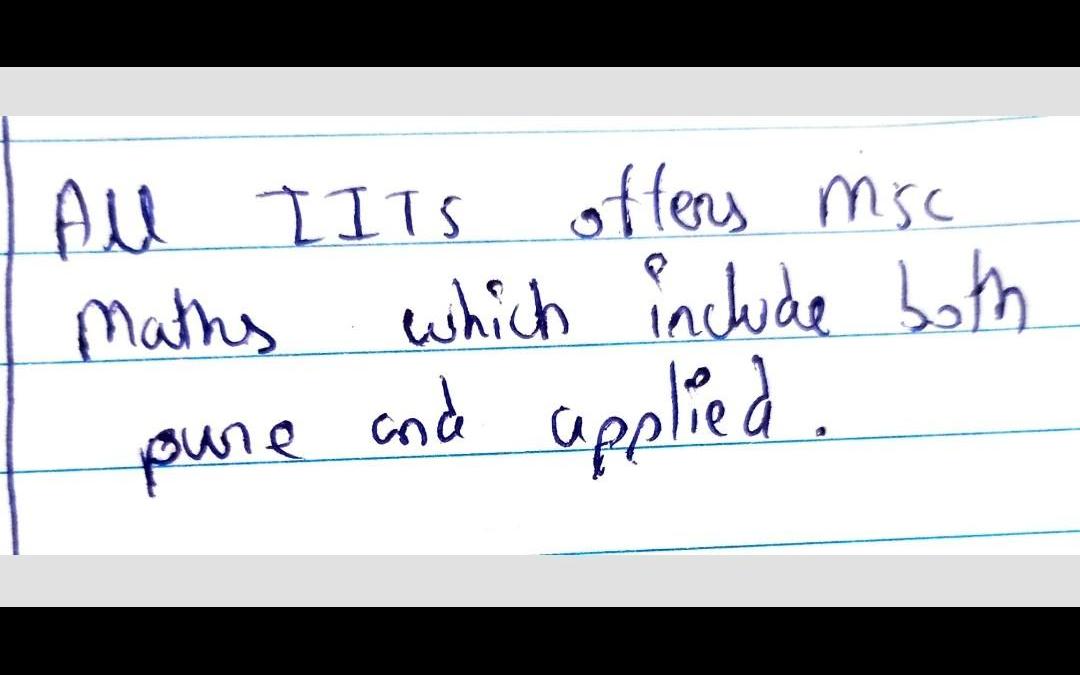 All IITs offers Msc
Maths which include both
pure and applied.